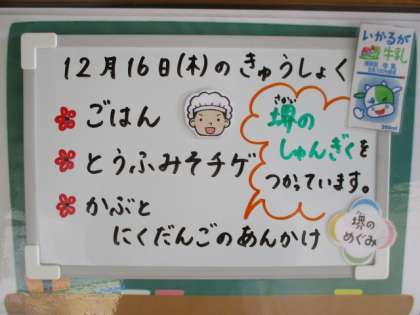 12月16日(木)のきゅうしょく
ごはん
とうふみそチゲ
かぶと
にくだんごのあんかけ
さかい
堺の
しゅんぎくを
つかっています。
いかるが
牛乳
堺の
めぐみ